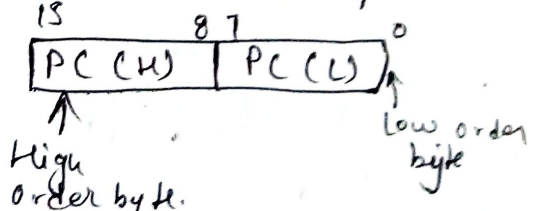 15 8 7 0
PC (H) PC (L)
High order byte.
Low order byte